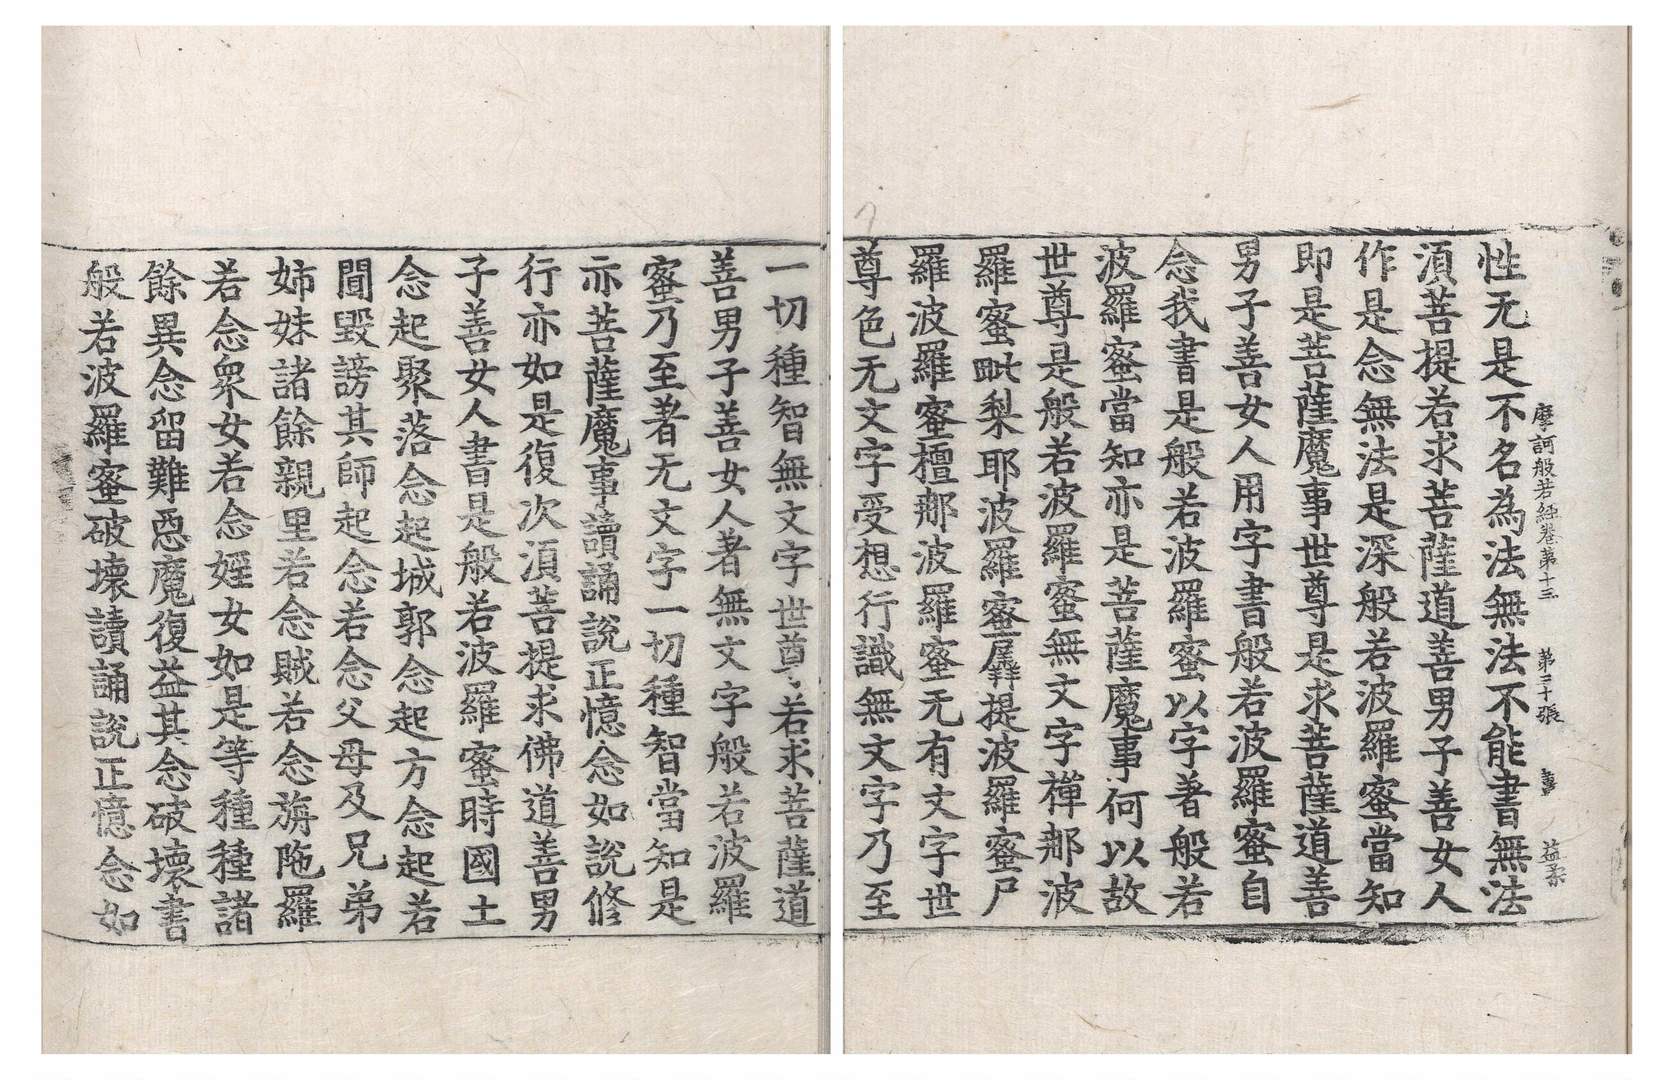 摩訶般若經卷第十三 第三十張 益柔
性无是不名為法無法不能書無法
湏菩提若求菩薩道善男子善女人
作是念無法是深般若波羅蜜當知
即是菩薩魔事世尊是求菩薩道善
男子善女人用字書般若波羅蜜自
念我書是般若波羅蜜以字著般若
波羅蜜當知亦是菩薩魔事何以故
世尊是般若波羅蜜無文字禪那波
羅蜜毗梨耶波羅蜜羼提波羅蜜尸
羅波羅蜜檀那波羅蜜无有文字世
尊色无文字受想行識無文字乃至
一切種智無文字世尊若求菩薩道
善男子善女人著無文字般若波羅
蜜乃至著无文字一切種智當知是
亦菩薩魔事讀誦說正憶念如說修
行亦如是復次湏菩提求佛道善男
子善女人書是般若波羅蜜時國土
念起聚落念起城郭念起方念起若
聞毀謗其師起念若念父母及兄弟
姉妹諸餘親里若念賊若念旃陁羅
若念衆女若念婬女如是等種種諸
餘異念留難惡魔復益其念破壞書
般若波羅蜜破壞讀誦說正憶念如